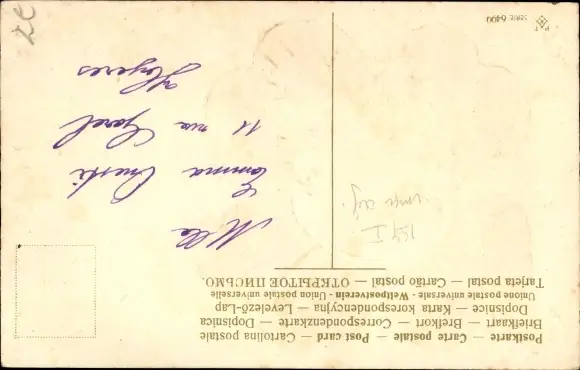 Postkarte — Carte postale — Post card — Cartolina postale
Briefkaart — Brefkort — Correspondenzkarte — Dopisnica
Dopisnice — Karta korespondencyjna — Levelező-Lap
Unione postale universale - Weltpostverein - Union postale universelle
Tarjeta postal — Cartão postal — ОТКРЫТОЕ ПИСЬМО.
Mlle
Emma
11 rue
Hyères
SERIE 6490